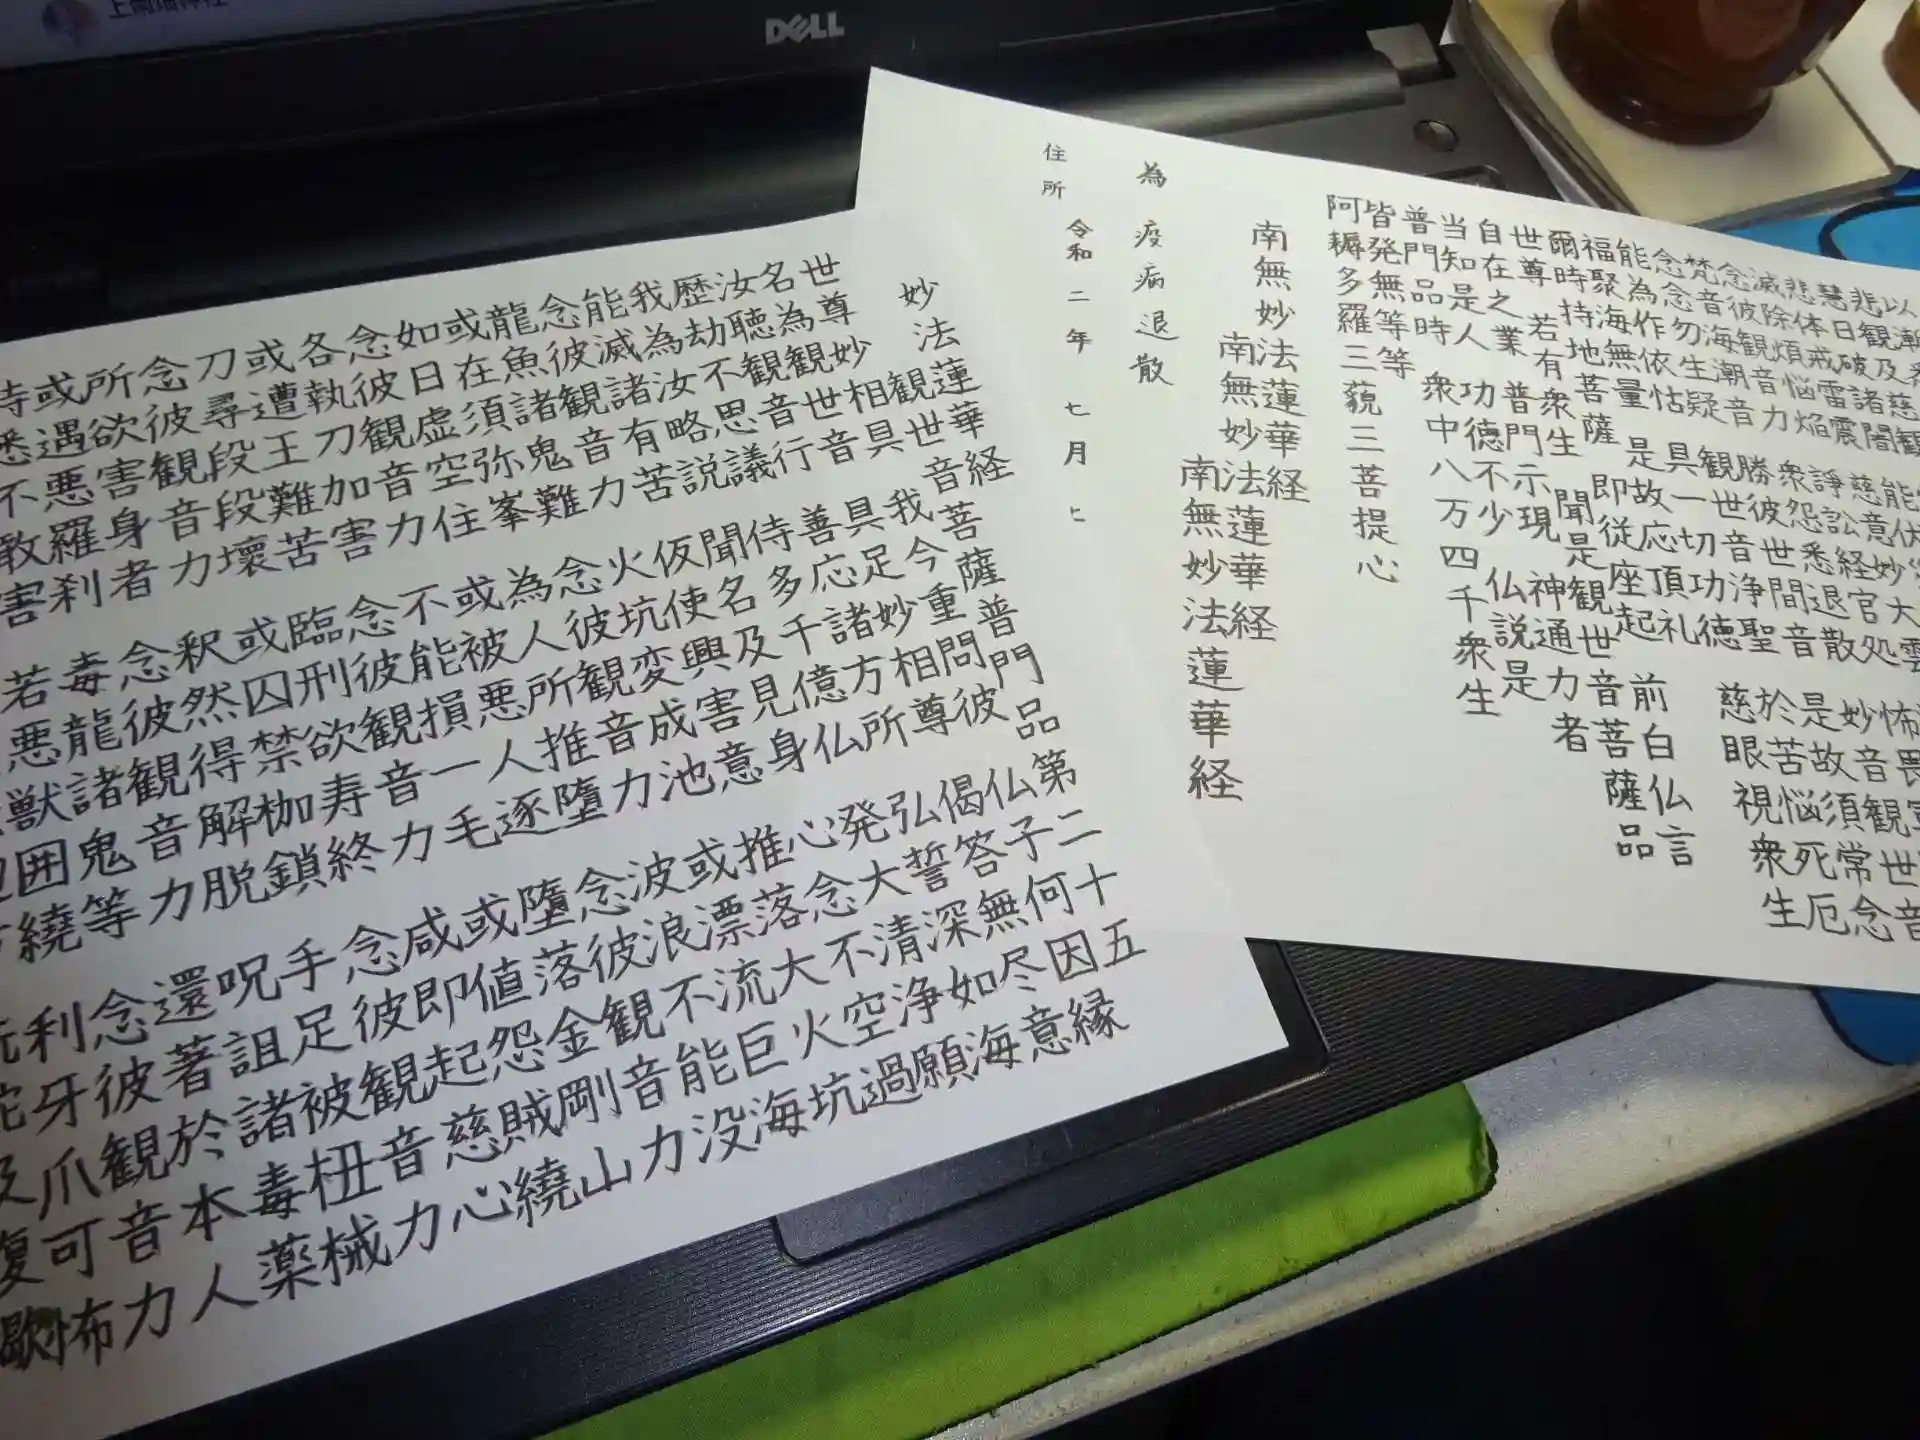 DELL
妙法蓮華経
観世音菩薩普門品第二十五
世尊妙相具 我今重問彼 仏子何因縁
名為観世音 具足妙相尊 偈答無尽意
汝聴観音行 善応諸方所 弘誓深如海
歴劫不思議 侍多千億仏 発大清浄願
我為汝略説 聞名及見身 心念不空過
能滅諸有苦 仮使興害意 推落大火坑
念彼観音力 火坑変成池 或漂流巨海
龍魚諸鬼難 念彼観音力 波浪不能没
或在須弥峯 為人所推墮 念彼観音力
如日虚空住 或被悪人逐 墮落金剛山
念彼観音力 不能損一毛 或値怨賊繞
各執刀加害 念彼観音力 咸即起慈心
或遭王難苦 臨刑欲寿終 念彼観音力
刀尋段段壊 或囚禁枷鎖 手足被杻械
念彼観音力 釈然得解脱 呪詛諸毒薬
所欲害身者 念彼観音力 還著於本人
或遇悪羅刹 毒龍諸鬼等 念彼観音力
時悉不敢害 若悪獣囲繞 利牙爪可怖
慧日破諸闇 能伏
悲体戒雷震 慈意妙大雲
滅除煩悩焔 諍訟経官処 怖畏軍
念彼観音力 衆怨悉退散 妙音観世音
梵音海潮音 勝彼世間音 是故須常念
念念勿生疑 観世音浄聖 於苦悩死厄
能為作依怙 具一切功徳 慈眼視衆生
福聚海無量 是故応頂礼
爾時持地菩薩 即従座起 前白仏言
世尊若有衆生 聞是観世音菩薩品
自在之業 普門示現 神通力者
当知是人 功徳不少 仏説是
普門品時 衆中八万四千衆生
皆発無等等
阿耨多羅三藐三菩提心
南無妙法蓮華経
南無妙法蓮華経
南無妙法蓮華経
為 疫病退散
令和二年 七月
住所